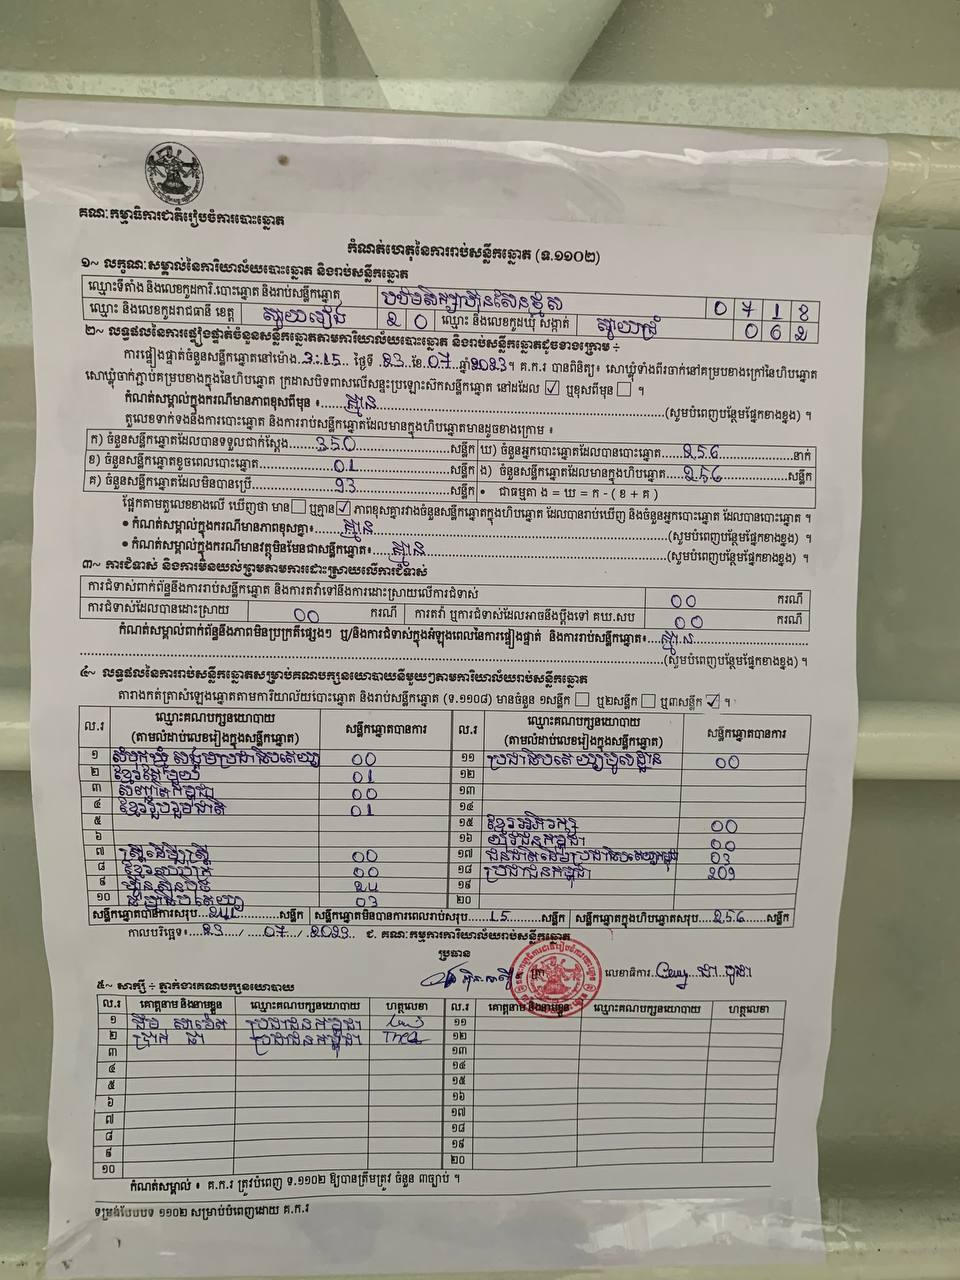 គណៈកម្មាធិការជាតិរៀបចំការបោះឆ្នោត
កំណត់ហេតុនៃការរាប់សន្លឹកឆ្នោត (ទ.១១០២)
១~ លក្ខណៈសម្គាល់នៃការិយាល័យបោះឆ្នោត និងរាប់សន្លឹកឆ្នោត
ឈ្មោះទីតាំង និងលេខកូដការិ.បោះឆ្នោត និងរាប់សន្លឹកឆ្នោត 0 7 1 8
ឈ្មោះ និងលេខកូដរាជធានី ខេត្ត ស្វាយរៀង 2 0 ឈ្មោះ និងលេខកូដឃុំ សង្កាត់ ស្វាយជ្រំ 0 6 2
២~ លទ្ធផលនៃការផ្ទៀងផ្ទាត់ចំនួនសន្លឹកឆ្នោតតាមការិយាល័យបោះឆ្នោត និងរាប់សន្លឹកឆ្នោតដូចខាងក្រោម ÷
ការផ្ទៀងផ្ទាត់ចំនួនសន្លឹកឆ្នោតនៅម៉ោង 3:15 ថ្ងៃទី 23 ខែ 07 ឆ្នាំ 2023។ គ.ក.រ បានពិនិត្យ៖ សោឃ្មុំទាំងពីរចាក់នៅគម្របខាងក្រៅនៃហិបឆ្នោត
សោឃ្មុំចាក់ភ្ជាប់គម្របខាងក្នុងនៃហិបឆ្នោត ក្រដាសបិទពាសលើសន្ទះប្រឡោះសិកសន្លឹកឆ្នោត នៅដដែល ☑ ឬខុសពីមុន ☐ ។
កំណត់សម្គាល់ក្នុងករណីមានភាពខុសពីមុន ៖ គ្មាន (សូមបំពេញបន្ថែមផ្នែកខាងខ្នង) ។
តួលេខទាក់ទងនឹងការបោះឆ្នោត និងការរាប់សន្លឹកឆ្នោតដែលមានក្នុងហិបឆ្នោតមានដូចខាងក្រោម ៖
ក) ចំនួនសន្លឹកឆ្នោតដែលបានទទួលជាក់ស្តែង 350 សន្លឹក ឃ) ចំនួនអ្នកបោះឆ្នោតដែលបានបោះឆ្នោត 256 នាក់
ខ) ចំនួនសន្លឹកឆ្នោតខូចពេលបោះឆ្នោត 01 សន្លឹក ង) ចំនួនសន្លឹកឆ្នោតដែលមានក្នុងហិបឆ្នោត 256 សន្លឹក
គ) ចំនួនសន្លឹកឆ្នោតដែលមិនបានប្រើ 93 សន្លឹក • ជាធម្មតា ង = ឃ = ក - ( ខ + គ )
ផ្អែកតាមតួលេខខាងលើ ឃើញថា មាន ☐ ឬគ្មាន ☑ ភាពខុសគ្នារវាងចំនួនសន្លឹកឆ្នោតក្នុងហិបឆ្នោត ដែលបានរាប់ឃើញ និងចំនួនអ្នកបោះឆ្នោត ដែលបានបោះឆ្នោត ។
• កំណត់សម្គាល់ក្នុងករណីមានភាពខុសគ្នា៖ គ្មាន (សូមបំពេញបន្ថែមផ្នែកខាងខ្នង) ។
• កំណត់សម្គាល់ក្នុងករណីមានវត្ថុមិនមែនជាសន្លឹកឆ្នោត៖ គ្មាន (សូមបំពេញបន្ថែមផ្នែកខាងខ្នង) ។
៣~ ការជំទាស់ និងការមិនយល់ព្រមតាមការដោះស្រាយលើការជំទាស់
ការជំទាស់ពាក់ព័ន្ធនឹងការរាប់សន្លឹកឆ្នោត និងការតវ៉ាទៅនឹងការដោះស្រាយលើការជំទាស់ 00 ករណី
ការជំទាស់ដែលបានដោះស្រាយ 00 ករណី ការតវ៉ា ឬការជំទាស់ដែលអាចនឹងប្តឹងទៅ គឃ.សប 00 ករណី
កំណត់សម្គាល់ពាក់ព័ន្ធនឹងភាពមិនប្រក្រតីផ្សេងៗ ឬ/និងការជំទាស់ក្នុងអំឡុងពេលនៃការផ្ទៀងផ្ទាត់ និងការរាប់សន្លឹកឆ្នោត៖ គ្មាន
(សូមបំពេញបន្ថែមផ្នែកខាងខ្នង) ។
៤~ លទ្ធផលនៃការរាប់សន្លឹកឆ្នោតសម្រាប់គណបក្សនយោបាយនីមួយៗតាមការិយាល័យរាប់សន្លឹកឆ្នោត
តារាងកត់ត្រាសំឡេងឆ្នោតតាមការិយាល័យបោះឆ្នោត និងរាប់សន្លឹកឆ្នោត (ទ.១១០៨) មានចំនួន ១សន្លឹក ☐ ឬ២សន្លឹក ☐ ឬ៣សន្លឹក ☑ ។
ល.រ ឈ្មោះគណបក្សនយោបាយ (តាមលំដាប់លេខរៀងក្នុងសន្លឹកឆ្នោត) សន្លឹកឆ្នោតបានការ ល.រ ឈ្មោះគណបក្សនយោបាយ (តាមលំដាប់លេខរៀងក្នុងសន្លឹកឆ្នោត) សន្លឹកឆ្នោតបានការ
១ សំបុកឃ្មុំ សង្គមប្រជាធិបតេយ្យ 00 ១១ ប្រជាធិបតេយ្យមូលដ្ឋាន 00
២ ខ្មែរតែមួយ 01 ១២
៣ សញ្ជាតិកម្ពុជា 00 ១៣
៤ ខ្មែររួបរួមជាតិ 01 ១៤
៥ ១៥ ខ្មែរអភិរក្ស 00
៦ ១៦ យុវជនកម្ពុជា 00
៧ ស្ត្រីដើម្បីស្ត្រី 00 ១៧ ជនជាតិដើមប្រជាធិបតេយ្យកម្ពុជា 03
៨ 00 ១៨ ប្រជាជនកម្ពុជា 209
៩ ហ្វ៊ុនស៊ិនប៉ិច 24 ១៩
១០ 03 ២០
សន្លឹកឆ្នោតបានការសរុប 241 សន្លឹក សន្លឹកឆ្នោតមិនបានការពេលរាប់សរុប 15 សន្លឹក សន្លឹកឆ្នោតក្នុងហិបឆ្នោតសរុប 256 សន្លឹក
កាលបរិច្ឆេទ៖ 23 / 07 / 2023 ជ. គណៈកម្មការការិយាល័យរាប់សន្លឹកឆ្នោត
ប្រធាន
លេខាធិការ
៥~ សាក្សី ÷ ភ្នាក់ងារគណបក្សនយោបាយ
ល.រ គោត្តនាម និងនាមខ្លួន ឈ្មោះគណបក្សនយោបាយ ហត្ថលេខា ល.រ គោត្តនាម និងនាមខ្លួន ឈ្មោះគណបក្សនយោបាយ ហត្ថលេខា
១ ប្រជាជនកម្ពុជា ១១
២ ប្រជាជនកម្ពុជា ១២
៣ ១៣
៤ ១៤
៥ ១៥
៦ ១៦
៧ ១៧
៨ ១៨
៩ ១៩
១០ ២០
កំណត់សម្គាល់ ៖ គ.ក.រ ត្រូវបំពេញ ទ.១១០២ ឱ្យបានត្រឹមត្រូវ ចំនួន ៣ច្បាប់ ។
ទម្រង់បែបបទ ១១០២ សម្រាប់បំពេញដោយ គ.ក.រ